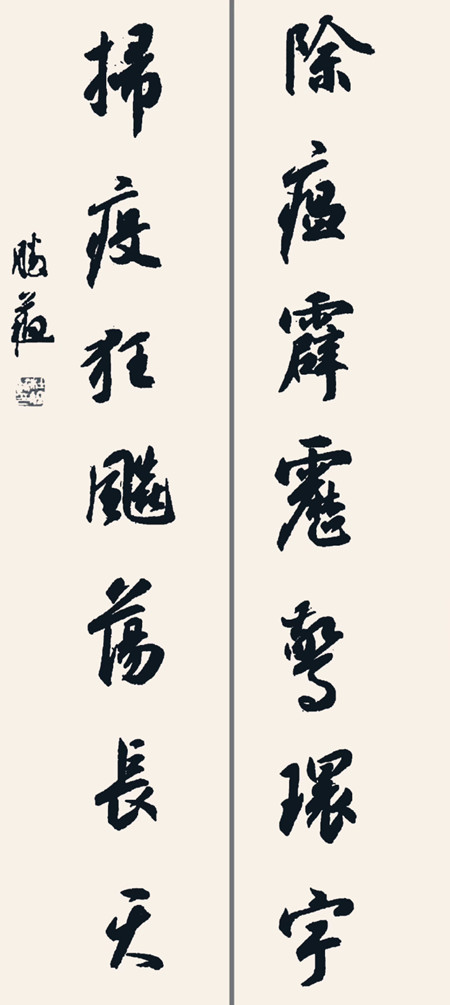 除瘟霹靂驚環宇
掃疫狂飈蕩長天